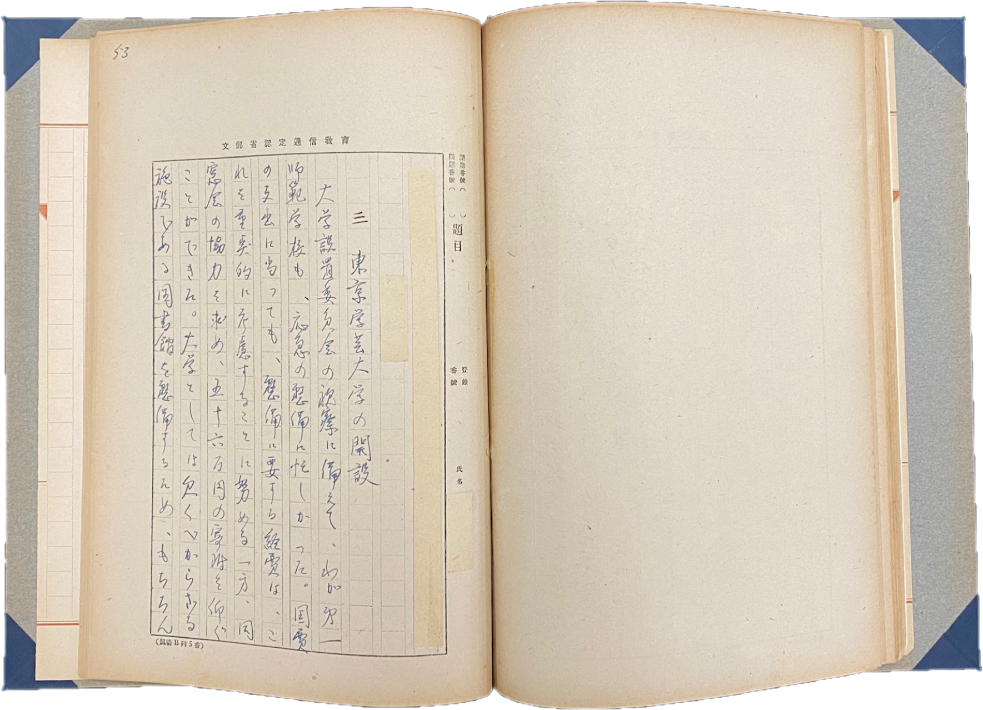 53
文部省認定通信教育
課題番號（　）
問題番號（　）
題目
登錄
番號
氏名
三　東京学芸大学の開設
大学設置委員会の視察に備えて、わが第一
師範学校も、応急の整備に忙しかった。国費
の支出に当っても、整備に要する経費は、こ
れを重点的に考慮することに努める一方、同
窓会の協力を求め、五十六万円の寄附を仰ぐ
ことができた。大学としては欠くべからざる
施設である図書館を整備するため、もちろん